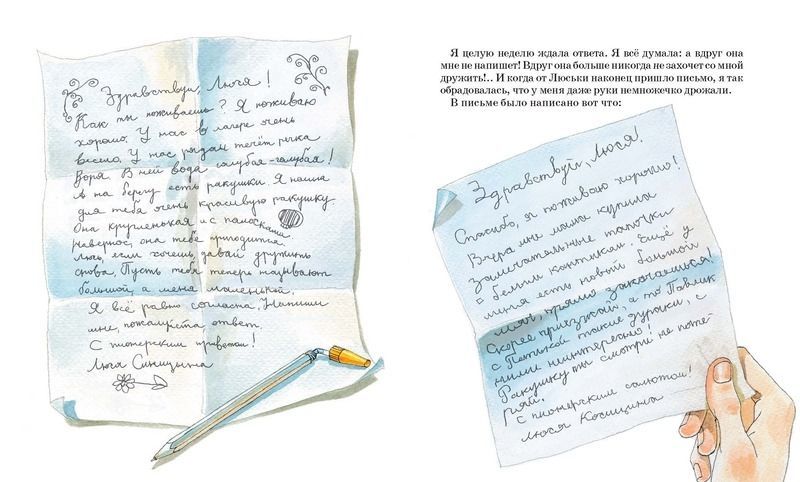 Здравствуй, Люся!
Как ты поживаешь? Я поживаю
хорошо. У нас в лагере очень
весело. У нас рядом течёт речка
Воря. В ней вода голубая-голубая!
А на берегу есть ракушки. Я нашла
для тебя очень красивую ракушку.
Она кругленькая и с полосками.
Наверное, она тебе пригодится.
Люсь, если хочешь, давай дружить
снова. Пусть тебя теперь называют
большой, а меня маленькой.
Я всё равно согласна. Напиши
мне, пожалуйста ответ.
С пионерским приветом!
Люся Синицына
Я целую неделю ждала ответа. Я всё думала: а вдруг она
мне не напишет! Вдруг она больше никогда не захочет со мной
дружить!.. И когда от Люськи наконец пришло письмо, я так
обрадовалась, что у меня даже руки немножечко дрожали.
В письме было написано вот что:
Здравствуй, Люся!
Спасибо, я поживаю хорошо!
Вчера мне мама купила
замечательные тапочки
с белым кантиком. Ещё у
меня есть новый большой
мяч, прямо закачаешься!
Скорее приезжай, а то Павлик
с Петькой такие дураки, с
ними неинтересно!
Ракушку ты смотри не поте-
ряй.
С пионерским салютом!
Люся Косицына